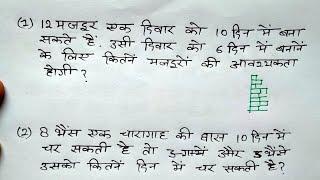 (1) 12 मजदूर एक दिवार को 10 दिन में बना
सकते हैं. उसी दिवार को 6 दिन में बनाने
के लिए कितने मजदूरों की आवश्यकता
होगी ?
(2) 8 भैंस एक चारागाह की घास 10 दिन में
चर सकती है तो और 5 भैंसे
उसको कितने दिन में चर सकती है?